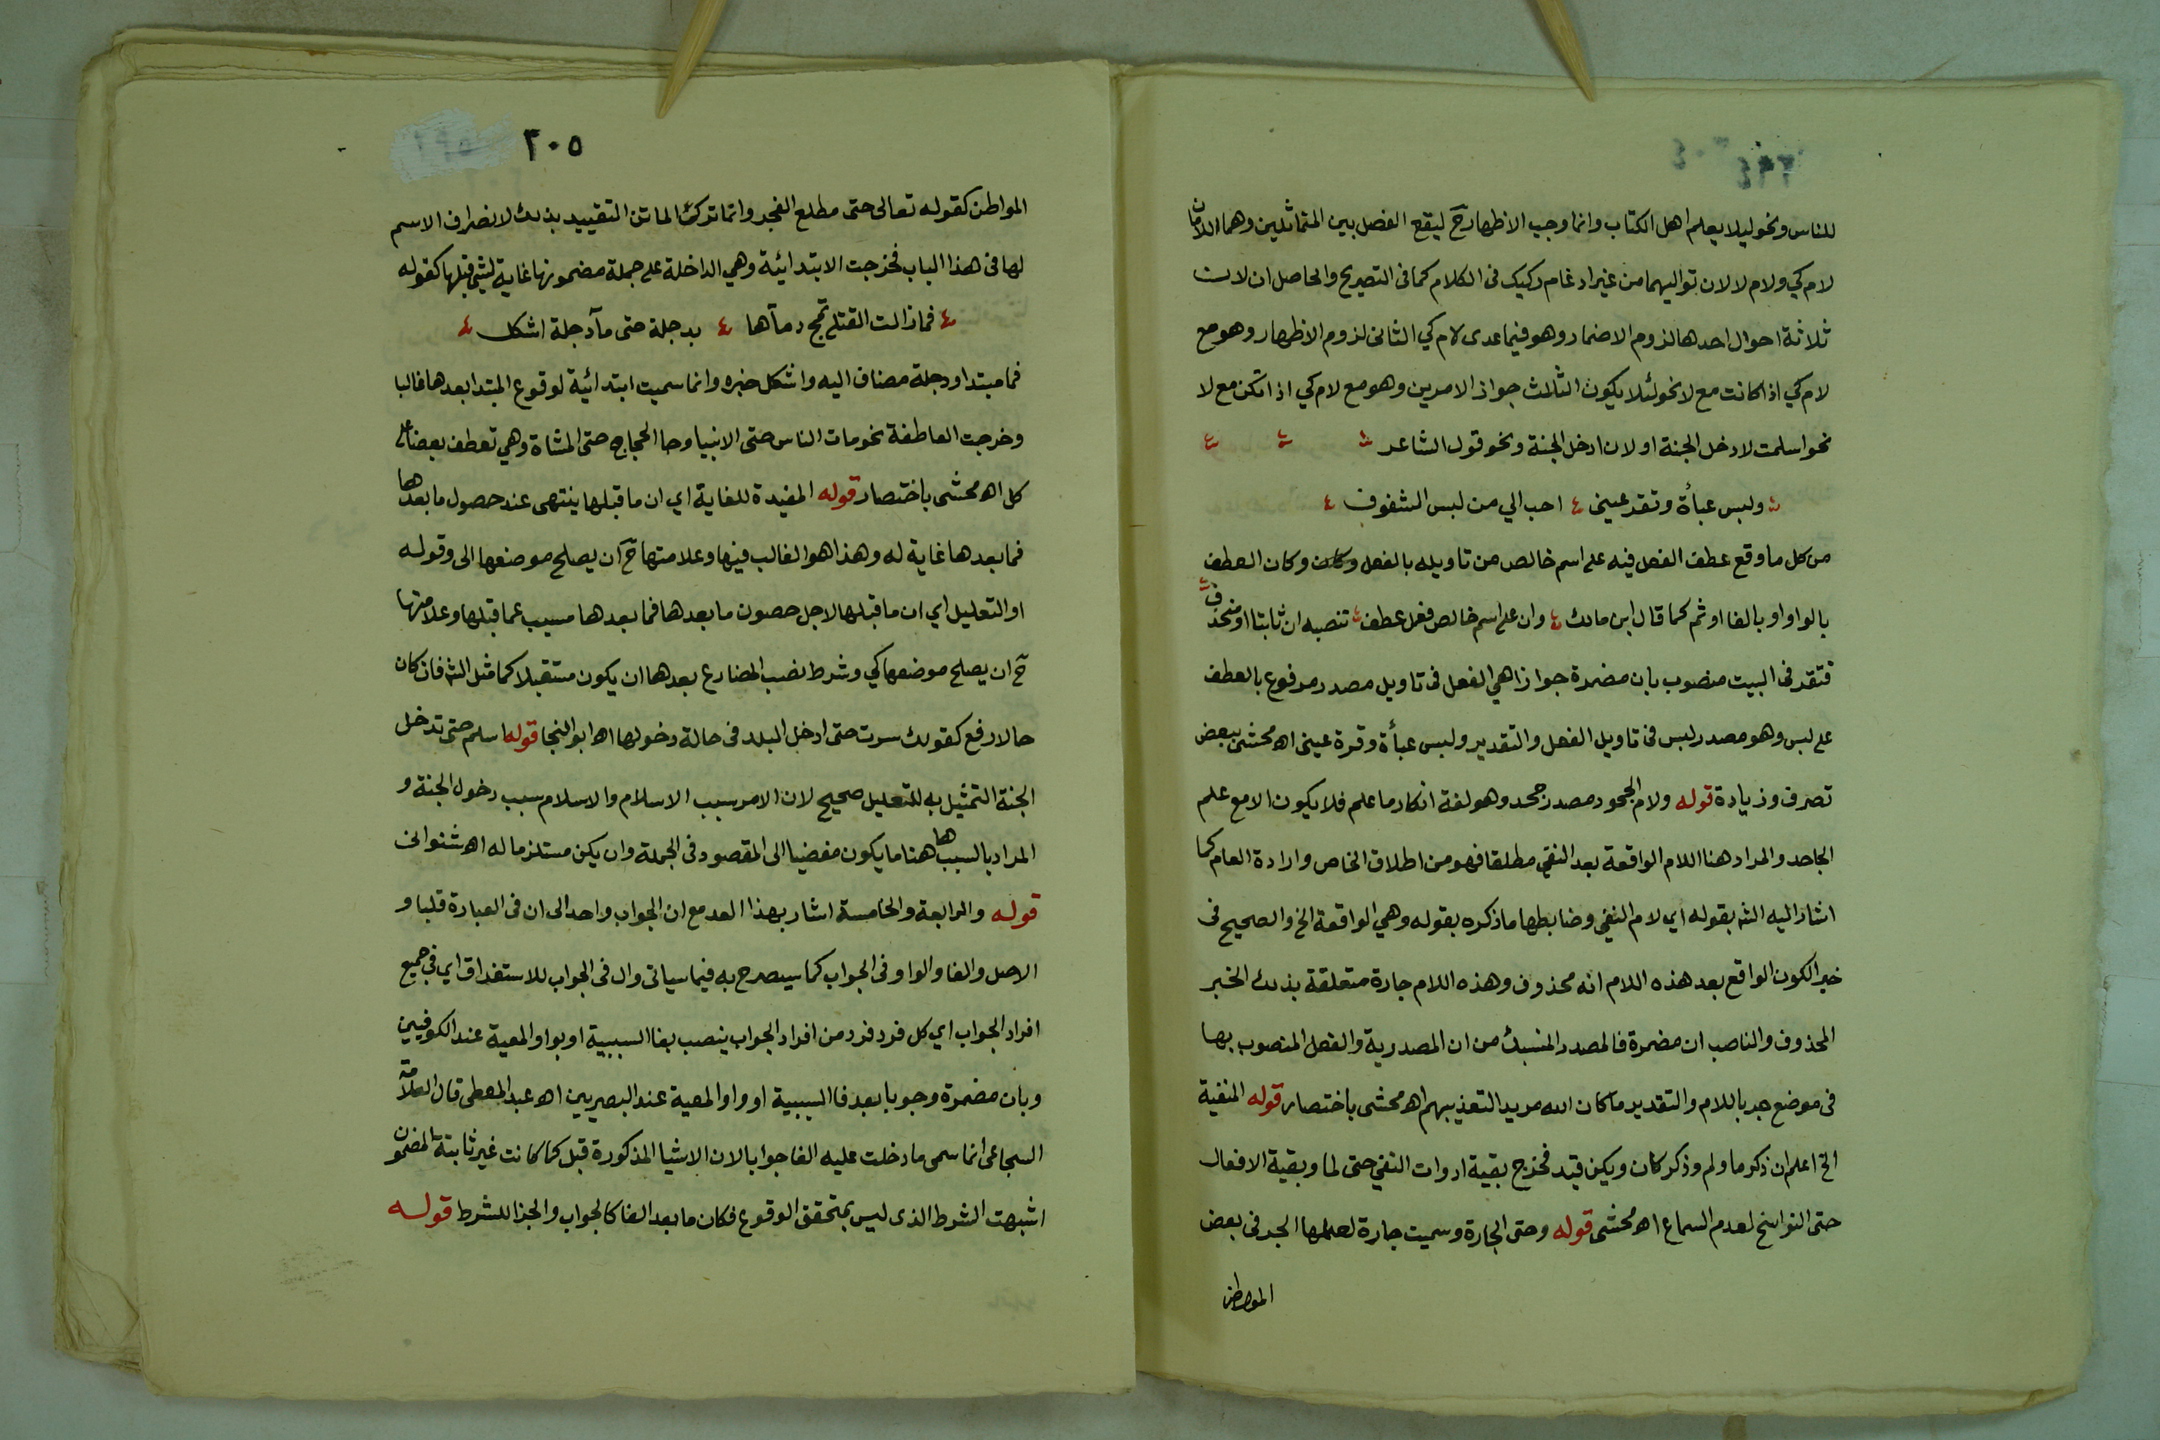 للناس ونحو ليلا يعلم اهل الكتاب وانما وجب الاظهار ح ليقع الفصل بين المتماثلين وهما اللامان
لام كي ولام لا لان تواليهما من غير ادغام ركيك في الكلام كما في التصريح والحاصل ان لان
ثلاثة احوال احدها لزوم الاضمار وهو فيما عدى لام كي الثاني لزوم الاظهار وهو مع
لام كي اذا كانت مع لا نحو لئلا يكون الثالث جواز الامرين وهو مع لام كي اذا تكن مع لا
نحو اسلمت لادخل الجنة او لان ادخل الجنة ونحو قول الشاعر
ولبس عبأة وتقر عيني احب الي من لبس الشفوف
من كل ما وقع عطف الفعل فيه على اسم خالص من تاويله بالفعل وكان العطف
بالواو او بالفا او ثم كما قال ابن مالك وان على اسم خالص فعل عطف تنصبه ان ثابتا او منحذف
فتقر في البيت منصوب بان مضمرة جوازا هي الفعل في تاويل مصدر مرفوع بالعطف
على لبس وهو مصدر ليس في تاويل الفعل والتقدير ولبس عبأة وقرة عيني اه محشي ببعض
تصرف وزيادة قوله ولام الجحود مصدر جحد وهو لغة انكار ما علم فلا يكون الا مع علم
الجاحد والمراد هنا اللام الواقعة بعد النفي مطلقا فهو من اطلاق الخاص وارادة العام كما
اشار اليه الش بقوله اي لام النفي وضابطها ما ذكره بقوله وهي الواقعة الخ والصحيح في
خبر الكون الواقع بعد هذه اللام انه محذوف وهذه اللام جارة متعلقة بذلك الخبر
المحذوف والناصب ان مضمرة فالمصدر المنسبك من ان المصدرية والفعل المنصوب بها
في موضع جر باللام والتقدير ما كان الله مريد التعذيبهم اه محشي باختصار قوله المنفية
الخ اعلم ان ذكر ما ولم وذكر كان ويكن قيد فخرج بقية ادوات النفي حتى لما وبقية الافعال
حتى النواسخ لعدم السماع اه محشي قوله وحتى الجارة وسميت جارة لعملها الجر في بعض
المواطن
٣٠٥
المواطن كقوله تعالى حتى مطلع الفجر وانما ترك الماتن التقييد بذلك لانصراف الاسم
لها في هذا الباب فخرجت الابتدائية وهي الداخلة على جملة مضمونها غاية لشيء قبلها كقوله
فما زالت القتلى تمج دمآها بدجلة حتى مآ دجلة اشكل
فما مبتدا ودجلة مضاف اليه واشكل خبره وانما سميت ابتدائية لوقوع المبتدا بعدها غالبا
وخرجت العاطفة نحو مات الناس حتى الانبيا وجا الحجاج حتى المشاة وهي تعطف بعضا على
كل اه محشي باختصار قوله المفيدة للغاية اي ان ما قبلها ينتهي عند حصول ما بعدها
فما بعدها غاية له وهذا هو الغالب فيها وعلامتها ح ان يصلح موضعها الى وقوله
او التعليل اي ان ما قبلها لاجل حصول ما بعدها فما بعدها مسبب عما قبلها وعلامتها
ح ان يصلح موضعها كي وشرط نصب المضارع بعدها ان يكون مستقبلا كما مثل الش فان كان
حالا رفع كقولك سرت حتى ادخل البلد في حالة دخولها اه ابو النجا قوله اسلم حتى تدخل
الجنة التمثيل به للتعليل صحيح لان الامر سبب الاسلام والاسلام سبب دخول الجنة و
المراد بالسبب هاهنا ما يكون مفضيا الى المقصود في الجملة وان يكن مستلزما له اه شنواني
قوله والرابعة والخامسة اشار بهذا العد مع ان الجواب واحد الى ان في العبارة قلبا و
الاصل والفا والواو في الجواب كما سيصرح به فيما سياتي وال في الجواب للاستغراق اي في جميع
افراد الجواب اي كل فرد فرد من افراد الجواب ينصب بفا السببية او بواو المعية عند الكوفيين
وبان مضمرة وجوبا بعد فا السببية او واو المعية عند البصريين اه عبد المعطي قال العلامة
السجاعي انما سمي ما دخلت عليه الفا جوابا لان الاشيا المذكورة قبل كما كانت غير ثابتة المضمون
اشبهت الشرط الذي ليس بمتحقق الوقوع فكان ما بعد الفا كالجواب والجزا للشرط قوله